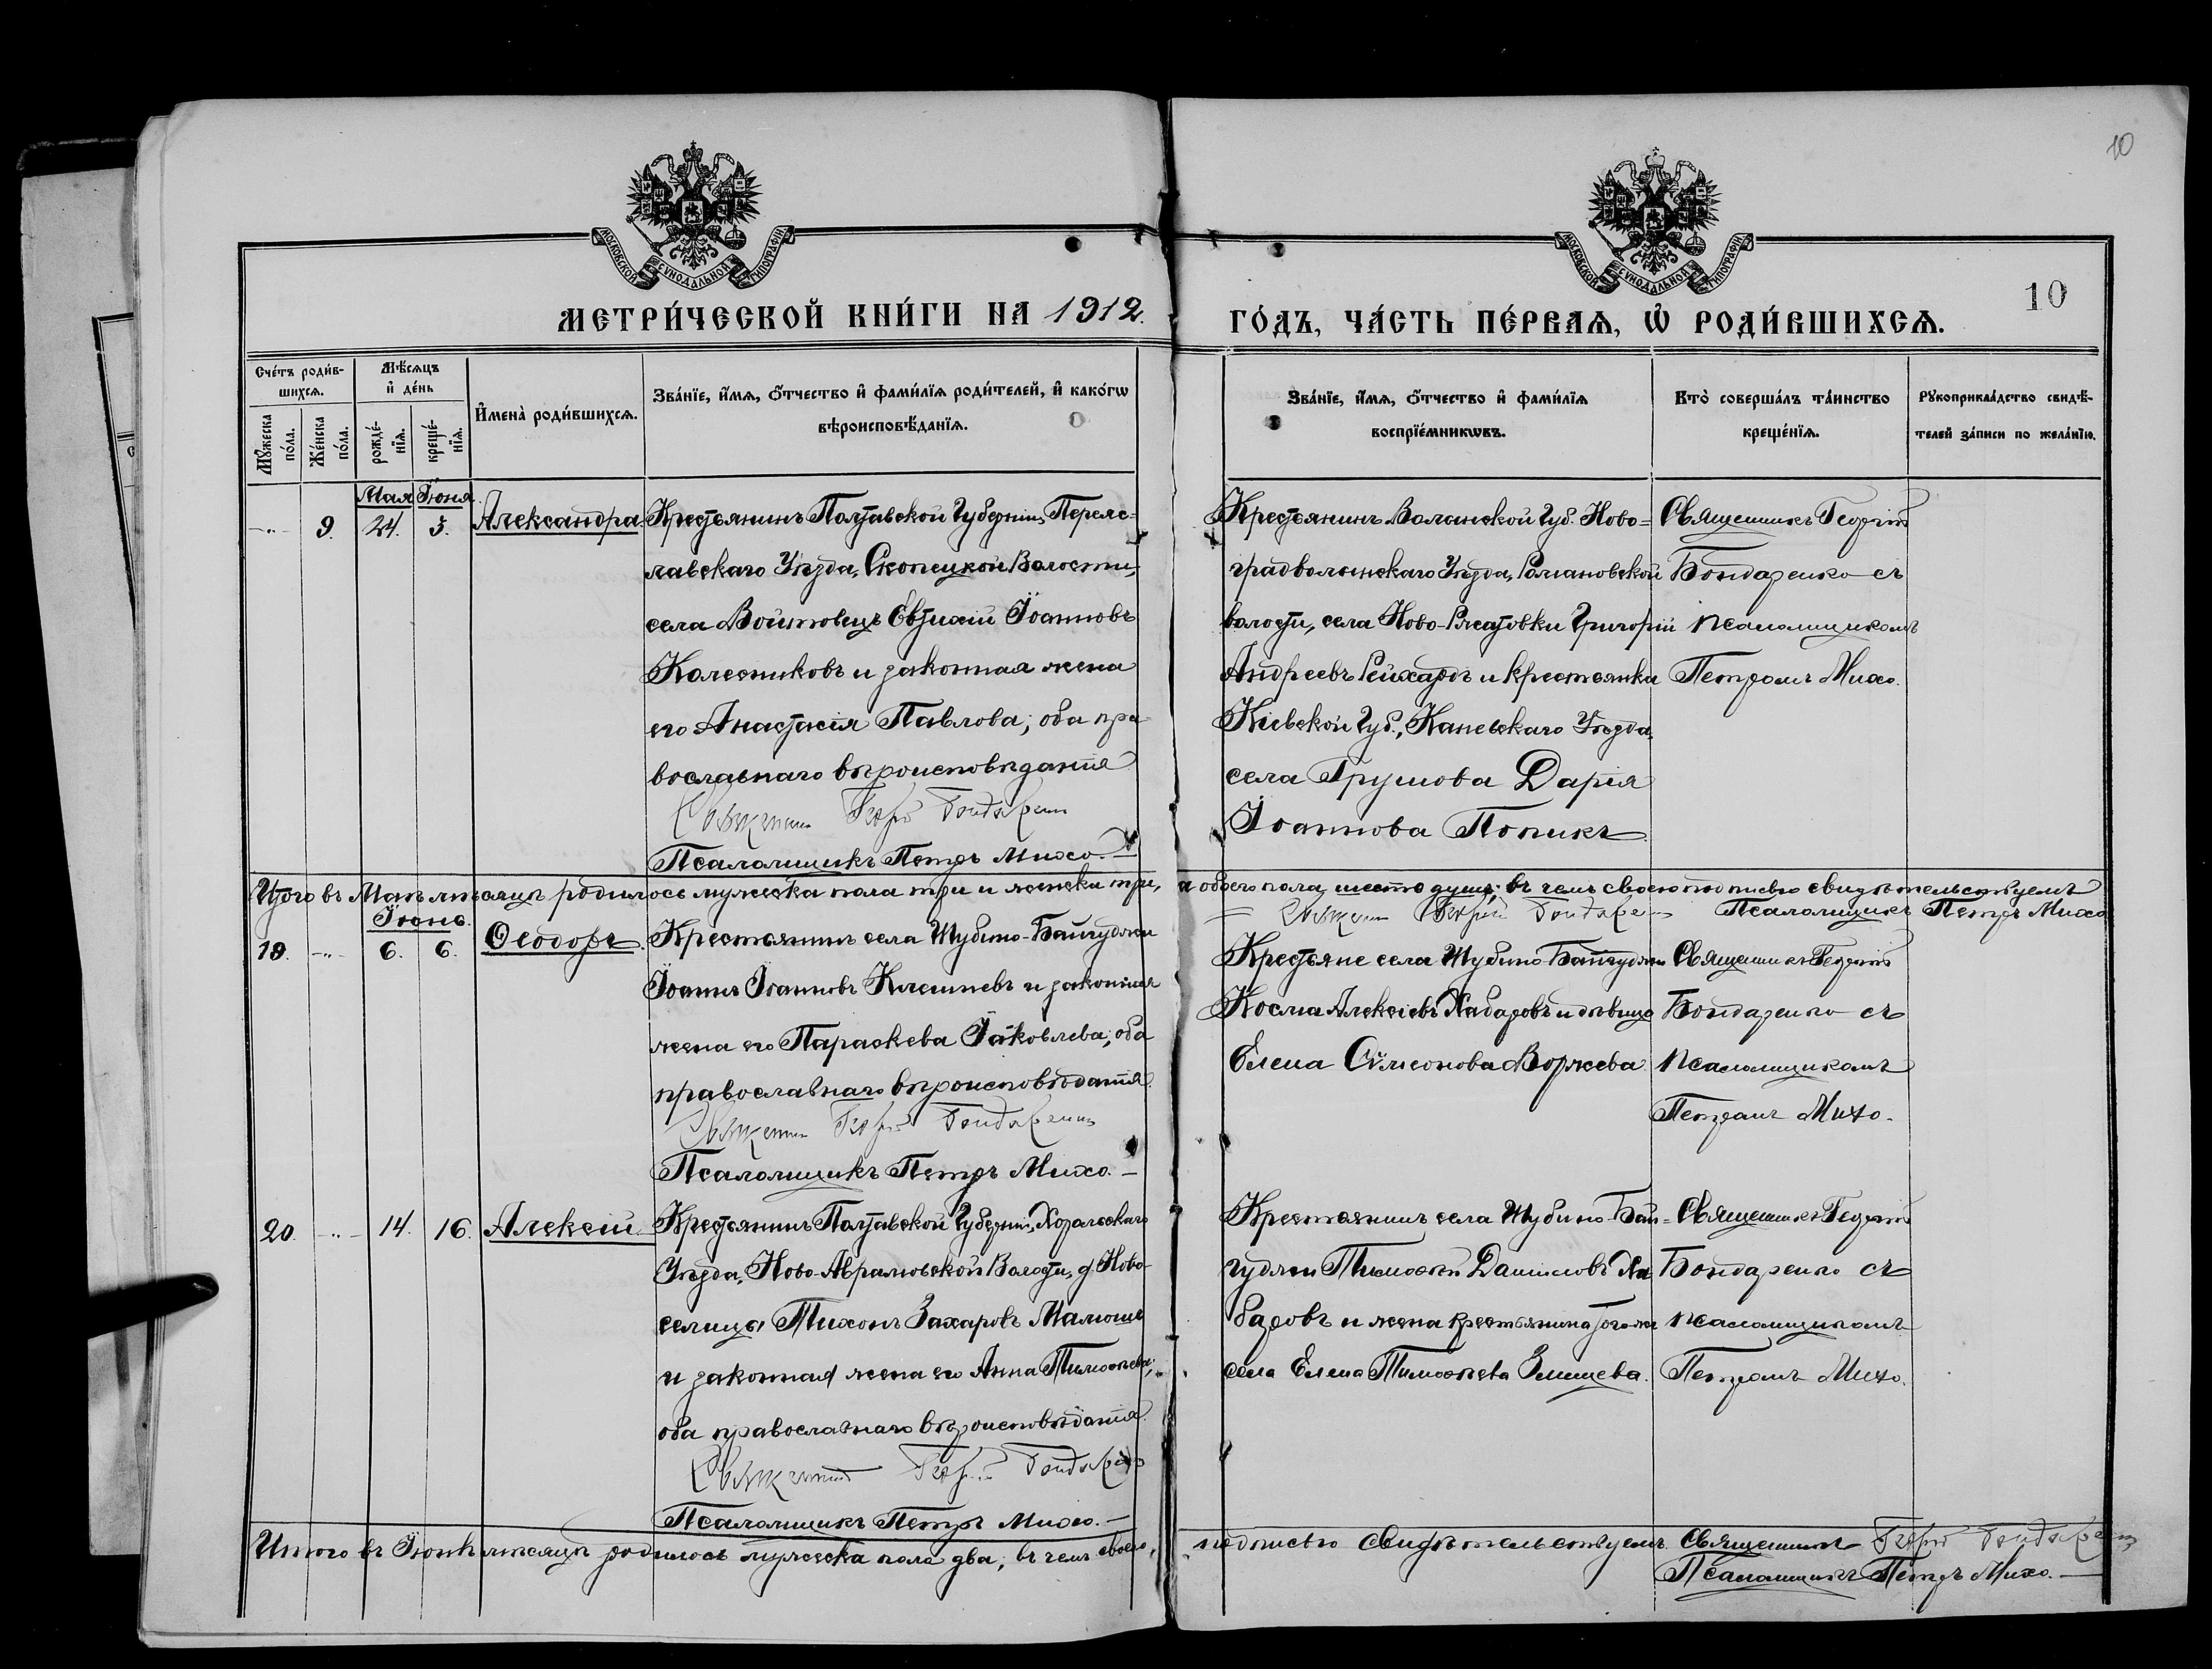 10
МОСКОВСКОЙ СѴНОДАЛЬНОЙ ТИПОГРАФІИ
МОСКОВСКОЙ СѴНОДАЛЬНОЙ ТИПОГРАФІИ
10
МЕТРИ́ЧЕСКОЙ КНИ́ГИ НА 1912.
ГО́ДЪ, ЧА́СТЬ ПЕ́РВАѦ, Ѡ҆ РОДИ́ВШИХСѦ.
Сче́тъ роди́в-
шихсѧ.
Мѣ́сѧцъ
и҆ де́нь
Мꙋ́жеска
по́ла.
Же́нска
по́ла.
рожде́-
нїѧ.
креще́-
нїѧ.
И҆мена̀ роди́вшихсѧ.
Зва́нїе, и҆́мѧ, ѻ҆́тчество и҆ фами́лїѧ роди́телей, и҆ како́гѡ
вѣроисповѣ́данїѧ.
Зва́нїе, и҆́мѧ, ѻ҆́тчество и҆ фами́лїѧ
воспрїе́мникѡвъ.
Кто̀ соверша́лъ та́инство
креще́нїѧ.
Рꙋкоприкла́дство свидѣ́-
телей за́писи по жела́нїю.
Мая Іюня
-"- 9. 24. 3. Александра.
Крестьянинъ Полтавской Губерніи, Переяс-
лавскаго Уѣзда, Скопецкой Волости,
села Войтовецъ Евфимій Іоанновъ
Колесниковъ и законная жена
его Анастасія Павлова; оба пра-
вославнаго вѣроисповѣданія
Священникъ Георгій Бондаренко
Псаломщикъ Петръ Михо.
Крестьянинъ Волынской Губ. Ново-
градволынскаго Уѣзда, Романовской
волости, села Григорій
Андреевъ Рейхардъ и крестьянка
Кіевской Губ., Каневскаго Уѣзда,
села Грушова Дарія
Іоаннова Попикъ
Священникъ Георгій
Бондаренко съ
псаломщикомъ
Петромъ Михо.
Итого въ Маѣ мѣсяцѣ родилось мужеска пола три и женска три, а обоего пола шесто душъ; въ чемъ своею подписью свидѣтельствуемъ
Священникъ Георгій Бондаренко Псаломщикъ Петръ Михо
Іюнь.
19. -"- 6. 6. Ѳеодоръ.
Крестьянинъ села Шубино-Байгуджи
Іоаннъ Іоанновъ Клешневъ и законная
жена его Параскева Іаковлева; оба
православнаго вѣроисповѣданія.
Священникъ Георгій Бондаренко
Псаломщикъ Петръ Михо.
Крестьяне села Шубино-Байгуджи
Косма Алексіевъ Хабаровъ и дѣвица
Елена Симеонова Воржева
Священникъ Георгій
Бондаренко съ
псаломщикомъ
Петромъ Михо.
20. -"- 14. 16. Алексій
Крестьянинъ Полтавской Губерніи, Хорольскаго
Уѣзда, Ново-Аврамовской Волости, д. Ново-
селицы Тихонъ Захаровъ Малюшъ
и законная жена его Анна Тимоѳеева;
оба православнаго вѣроисповѣданія.
Священникъ Георгій Бондаренко
Псаломщикъ Петръ Михо.
Крестьянинъ села Шубино-Бай-
гуджи Тимоѳей Данииловъ Ха
баровъ и жена крестьянина того же
села Елена Тимоѳеева Змищева.
Священникъ Георгій
Бондаренко съ
псаломщикомъ
Петромъ Михо.
Итого въ Іюнѣ мѣсяцѣ родилось мужеска пола два, въ чемъ своею подписью свидѣтельствуемъ. Священникъ Георгій Бондаренко
Псаломщикъ Петръ Михо.